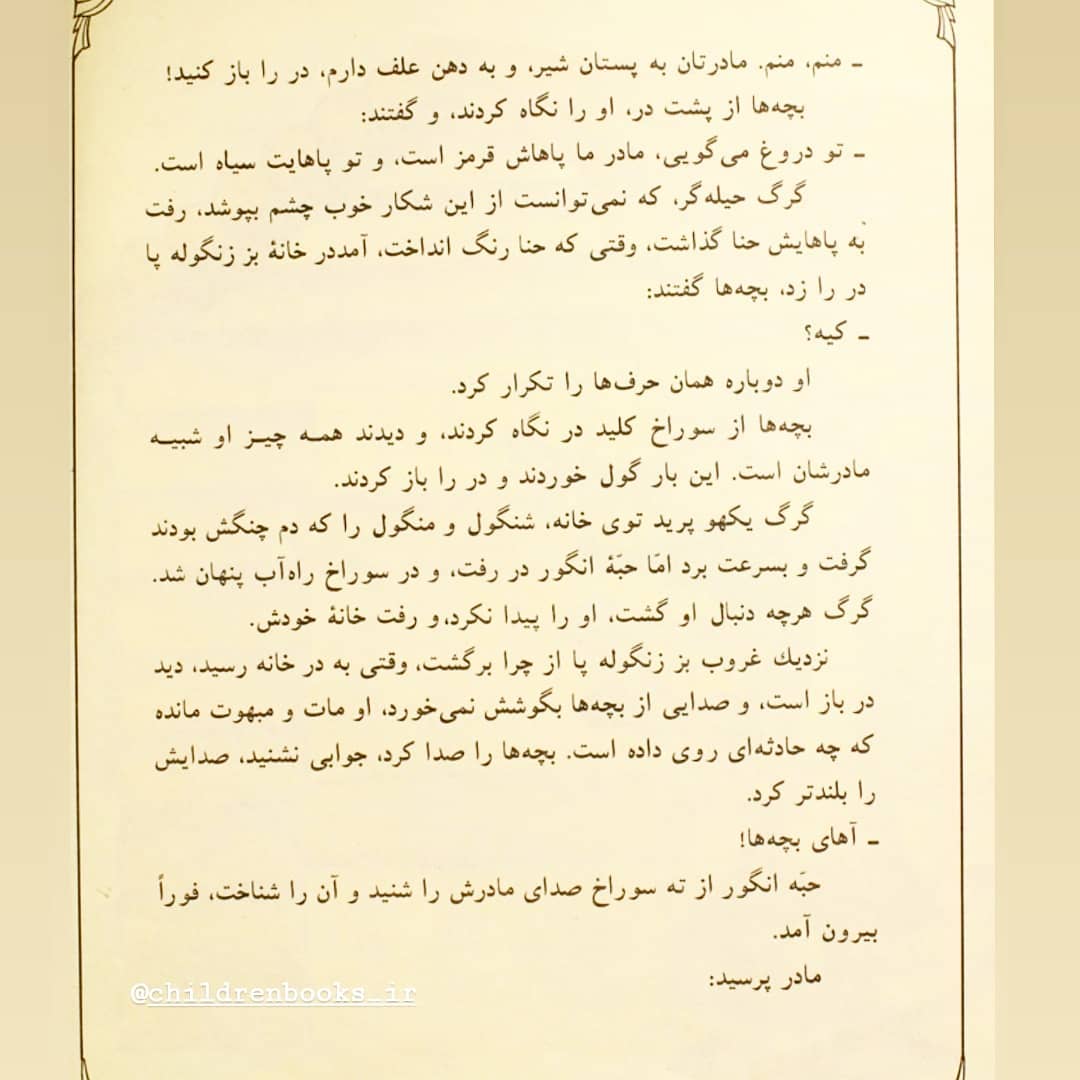 ـ منم، منم. مادرتان به پستان شیر، و به دهن علف دارم، در را باز کنید!
بچه‌ها از پشت در، او را نگاه کردند، و گفتند:
ـ تو دروغ می‌گویی، مادر ما پاهاش قرمز است، و تو پاهایت سیاه است.
گرگ حیله‌گر، که نمی‌توانست از این شکار خوب چشم بپوشد، رفت
به پاهایش حنا گذاشت، وقتی که حنا رنگ انداخت، آمددر خانهٔ بز زنگوله پا
در را زد، بچه‌ها گفتند:
ـ کیه؟
او دوباره همان حرف‌ها را تکرار کرد.
بچه‌ها از سوراخ کلید در نگاه کردند، و دیدند همـه چیـز او شبیـه
مادرشان است. این بار گول خوردند و در را باز کردند.
گرگ یکهو پرید توی خانه، شنگول و منگول را که دم چنگش بودند
گرفت و بسرعت برد امّا حبّهٔ انگور در رفت، و در سوراخ راه‌آب پنهان شد.
گرگ هرچه دنبال او گشت، او را پیدا نکرد،و رفت خانهٔ خودش.
نزدیك غروب بز زنگوله پا از چرا برگشت، وقتی به در خانه رسید، دید
در باز است، و صدایی از بچه‌ها بگوشش نمی‌خورد، او مات و مبهوت مانده
که چه حادثه‌ای روی داده است. بچه‌ها را صدا کرد، جوابی نشنید، صدایش
را بلندتر کرد.
ـ آهای بچه‌ها!
حبّه انگور از ته سوراخ صدای مادرش را شنید و آن را شناخت، فوراً
بیرون آمد.
مادر پرسید:
@childrenbooks_ir